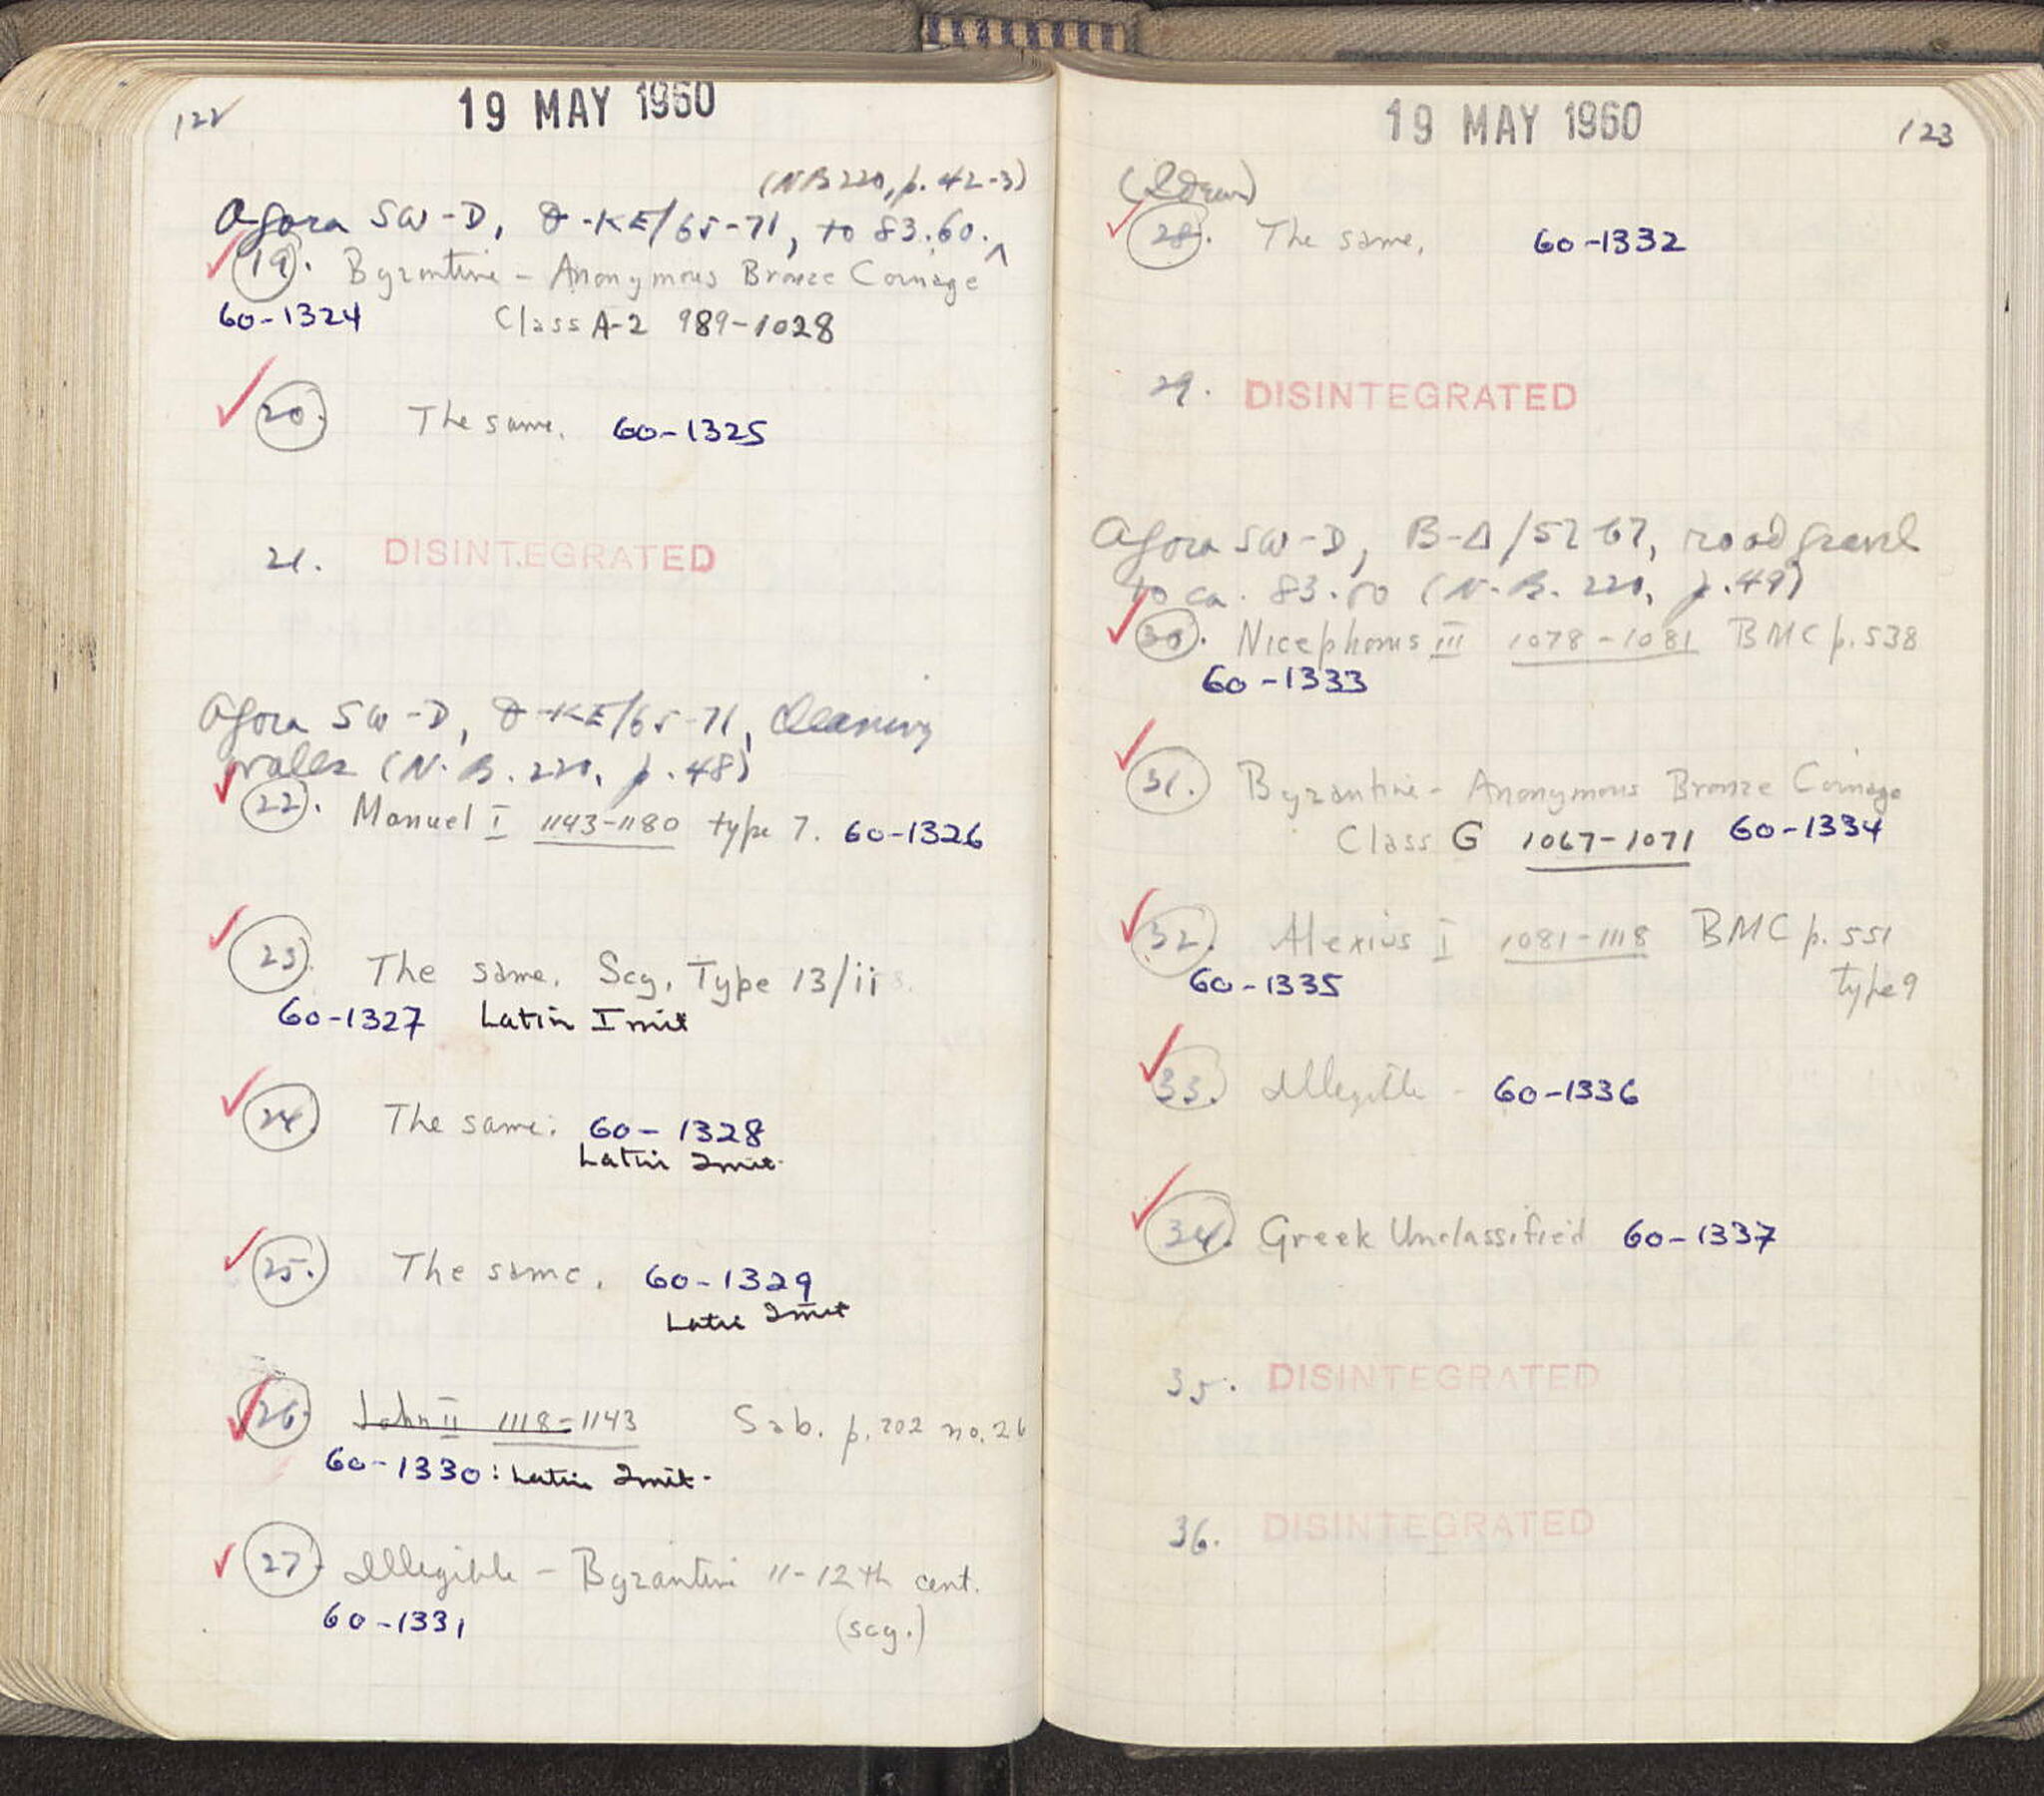 122
19 MAY 1960
(NB 220, p. 42-3)
Agora SW-D, -KE/65-71, to 83.60.
19. Byzantine - Anonymous Bronze Coinage
60-1324 Class A-2 989-1028
20. The same. 60-1325
21. DISINTEGRATED
Agora SW-D, -KE/65-71, cleaning
walls (N.B. 220, p. 48)
22. Manuel I 1143-1180 type 7. 60-1326
23. The same. Scy. Type 13/ii
60-1327 Latin Imit
24. The same. 60-1328
Latin Imit.
25. The same. 60-1329
Latin Imit
26. John II 1118-1143 Sab. p. 202 no. 26
60-1330: Latin Imit.
27. Illegible - Byzantine 11-12th cent.
60-1331 (scy.)
19 MAY 1960
123
(Idem)
28. The same. 60-1332
29. DISINTEGRATED
Agora SW-D, B-Δ/57 67, road gravel
to ca. 83.50 (N.B. 220, p. 49)
30. Nicephorus III 1078-1081 BMC p. 538
60-1333
31. Byzantine - Anonymous Bronze Coinage
Class G 1067-1071 60-1334
32. Alexius I 1081-1118 BMC p. 551
60-1335 type 9
33. Illegible - 60-1336
34. Greek Unclassified 60-1337
35. DISINTEGRATED
36. DISINTEGRATED